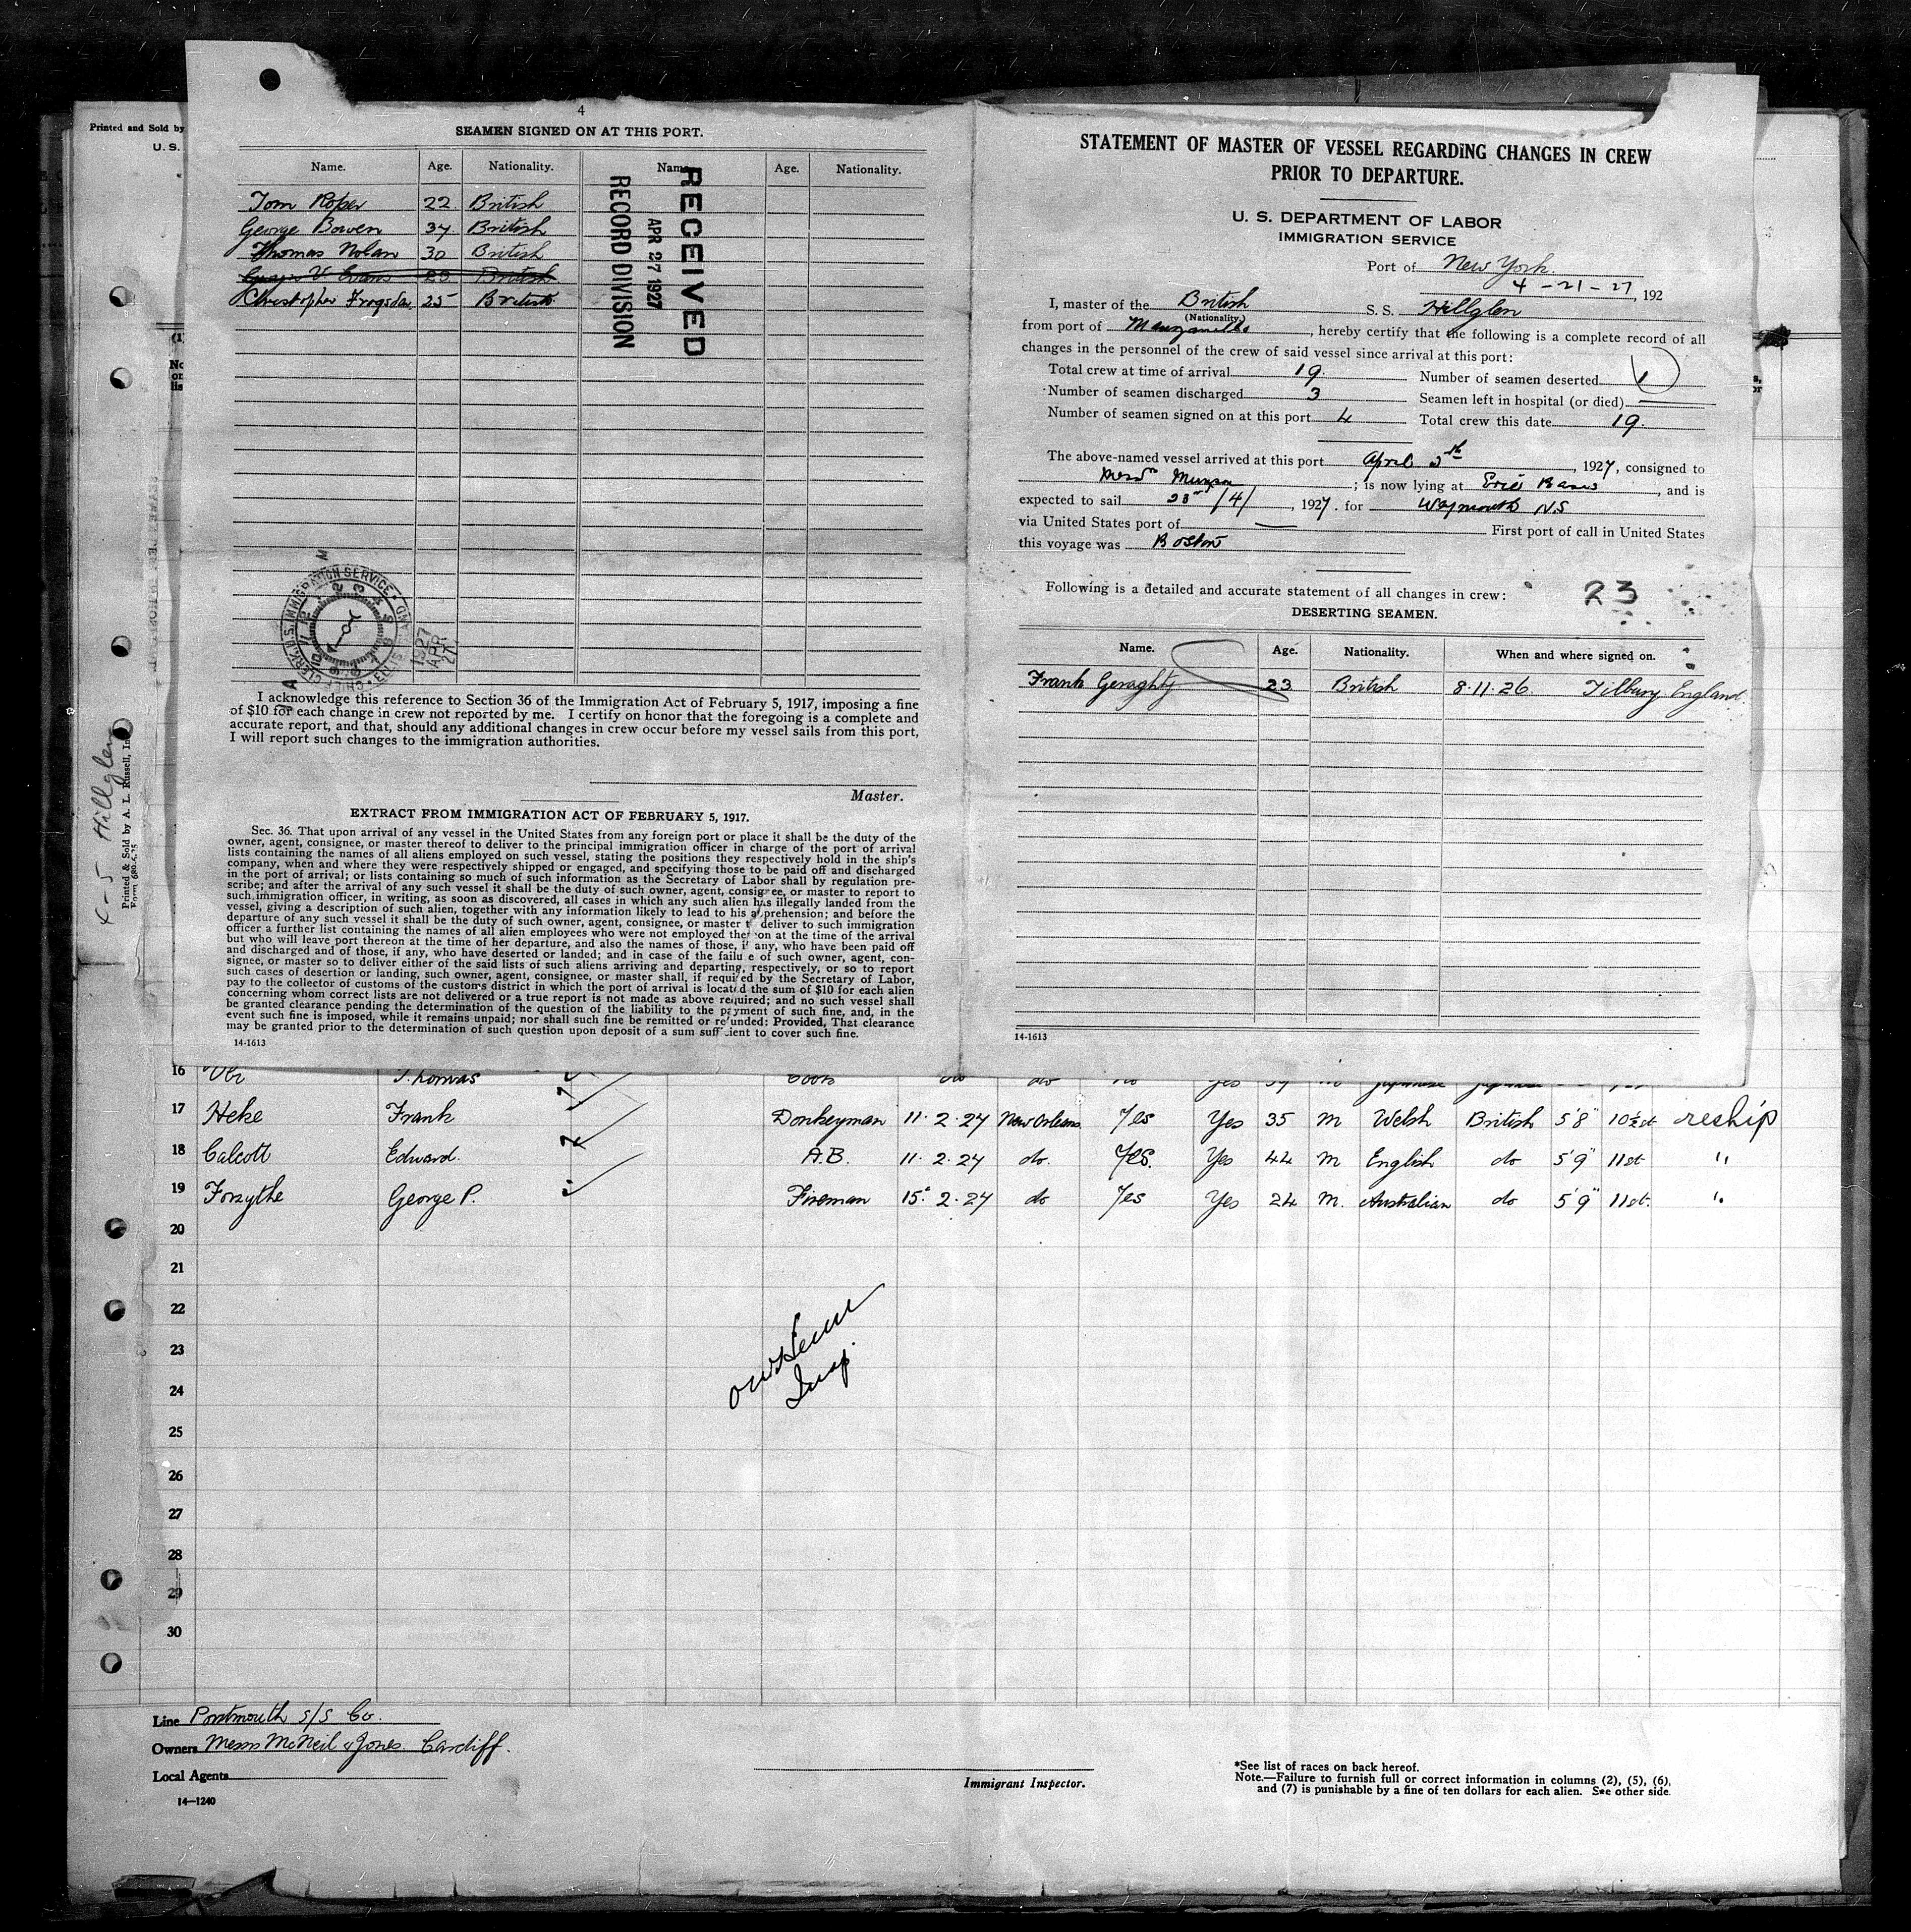 Printed and Sold by
U. S.
4
SEAMEN SIGNED ON AT THIS PORT.
Name. Age. Nationality. Name. Age. Nationality.
Tom Roper 22 British
George Bowen 37 British
Thomas Nolan 30 British
V. Evans 23 British
Christopher 25 British
RECEIVED
APR 27 1927
RECORD DIVISION
CHIEF CLERK, U.S. IMMIGRATION SERVICE
1927
APR
27
I acknowledge this reference to Section 36 of the Immigration Act of February 5, 1917, imposing a fine
of $10 for each change in crew not reported by me. I certify on honor that the foregoing is a complete and
accurate report, and that, should any additional changes in crew occur before my vessel sails from this port,
I will report such changes to the immigration authorities.
Master.
EXTRACT FROM IMMIGRATION ACT OF FEBRUARY 5, 1917.
Sec. 36. That upon arrival of any vessel in the United States from any foreign port or place it shall be the duty of the
owner, agent, consignee, or master thereof to deliver to the principal immigration officer in charge of the port of arrival
lists containing the names of all aliens employed on such vessel, stating the positions they respectively hold in the ship's
company, when and where they were respectively shipped or engaged, and specifying those to be paid off and discharged
in the port of arrival; or lists containing so much of such information as the Secretary of Labor shall by regulation pre-
scribe; and after the arrival of any such vessel it shall be the duty of such owner, agent, consignee, or master to report to
such immigration officer, in writing, as soon as discovered, all cases in which any such alien has illegally landed from the
vessel, giving a description of such alien, together with any information likely to lead to his apprehension; and before the
departure of any such vessel it shall be the duty of such owner, agent, consignee, or master to deliver to such immigration
officer a further list containing the names of all alien employees who were not employed thereon at the time of the arrival
but who will leave port thereon at the time of her departure, and also the names of those, if any, who have been paid off
and discharged and of those, if any, who have deserted or landed; and in case of the failure of such owner, agent, con-
signee, or master so to deliver either of the said lists of such aliens arriving and departing, respectively, or so to report
such cases of desertion or landing, such owner, agent, consignee, or master shall, if required by the Secretary of Labor,
pay to the collector of customs of the customs district in which the port of arrival is located the sum of $10 for each alien
concerning whom correct lists are not delivered or a true report is not made as above required; and no such vessel shall
be granted clearance pending the determination of the question of the liability to the payment of such fine, and, in the
event such fine is imposed, while it remains unpaid; nor shall such fine be remitted or refunded: Provided, That clearance
may be granted prior to the determination of such question upon deposit of a sum sufficient to cover such fine.
14-1613
STATEMENT OF MASTER OF VESSEL REGARDING CHANGES IN CREW
PRIOR TO DEPARTURE.
U. S. DEPARTMENT OF LABOR
IMMIGRATION SERVICE
Port of New York.
4-21-27, 192
I, master of the British S. S. Hillglen
(Nationality)
from port of Manzanillo, hereby certify that the following is a complete record of all
changes in the personnel of the crew of said vessel since arrival at this port:
Total crew at time of arrival 19. Number of seamen deserted 1
Number of seamen discharged 3 Seamen left in hospital (or died)
Number of seamen signed on at this port 4 Total crew this date 19.
The above-named vessel arrived at this port April 5th, 1927, consigned to
Messrs Munson; is now lying at Erie Basin, and is
expected to sail 23rd/4/, 1927. for Waymouth N.S
via United States port of — First port of call in United States
this voyage was Boston
Following is a detailed and accurate statement of all changes in crew: 23
DESERTING SEAMEN.
Name. Age. Nationality. When and where signed on.
Frank Geraghty 23 British 8.11.26 Tilbury England
14-1613
4-5 Hillglen
Printed & Sold by A. L. Russell, Inc
16 Thomas Cook do do
17 Heke Frank Donkeyman 11.2.27 New Orleans Yes Yes 35 M Welsh British 5'8" 10½st reship
18 Calcott Edward. A.B. 11.2.27 do. Yes. Yes 44 M English do 5'9" 11st "
19 Forsythe George P. Fireman 15.2.27 do Yes Yes 24 M. Australian do 5'9" 11st. "
20
21
22
23
24
25
26
27
28
29
30
Insp.
Line Portmouth S/S Co.
Owners Messrs McNeil & Jones. Cardiff.
Local Agents
14—1240
Immigrant Inspector.
*See list of races on back hereof.
Note.—Failure to furnish full or correct information in columns (2), (5), (6),
and (7) is punishable by a fine of ten dollars for each alien. See other side.